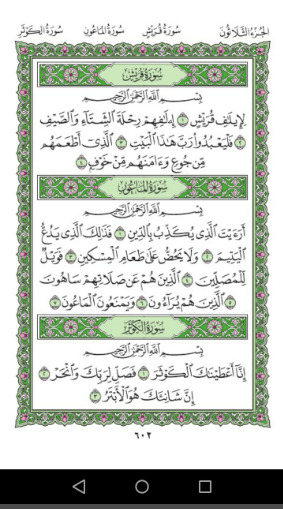 الجزء الثلاثون سورة قريش سورة الماعون سورة الكوثر
سورة قريش
بسم الله الرحمن الرحيم
لِإِيلَٰفِ قُرَيْشٍ ١ إِۦلَٰفِهِمْ رِحْلَةَ الشِّتَاءِ وَالصَّيْفِ
٢ فَلْيَعْبُدُوا رَبَّ هَٰذَا الْبَيْتِ ٣ الَّذِي أَطْعَمَهُم
مِّن جُوعٍ وَءَامَنَهُم مِّنْ خَوْفٍ ٤
سورة الماعون
بسم الله الرحمن الرحيم
أَرَءَيْتَ الَّذِي يُكَذِّبُ بِالدِّينِ ١ فَذَٰلِكَ الَّذِي يَدُعُّ
الْيَتِيمَ ٢ وَلَا يَحُضُّ عَلَىٰ طَعَامِ الْمِسْكِينِ ٣ فَوَيْلٌ
لِّلْمُصَلِّينَ ٤ الَّذِينَ هُمْ عَن صَلَاتِهِمْ سَاهُونَ
٥ الَّذِينَ هُمْ يُرَاءُونَ ٦ وَيَمْنَعُونَ الْمَاعُونَ ٧
سورة الكوثر
بسم الله الرحمن الرحيم
إِنَّا أَعْطَيْنَٰكَ الْكَوْثَرَ ١ فَصَلِّ لِرَبِّكَ وَانْحَرْ ٢
إِنَّ شَانِئَكَ هُوَ الْأَبْتَرُ ٣
٦٠٢